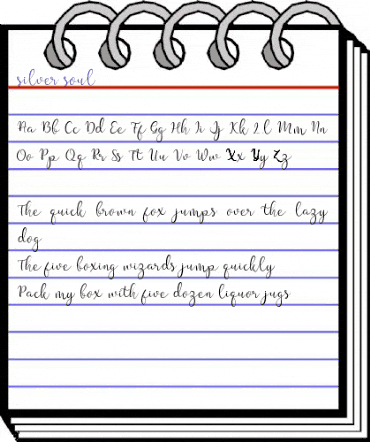 silver soul
Aa Bb Cc Dd Ee Ff Gg Hh Ii Jj Kk Ll Mm Nn
Oo Pp Qq Rr Ss Tt Uu Vv Ww Xx Yy Zz
The quick brown fox jumps over the lazy
dog
The five boxing wizards jump quickly
Pack my box with five dozen liquor jugs